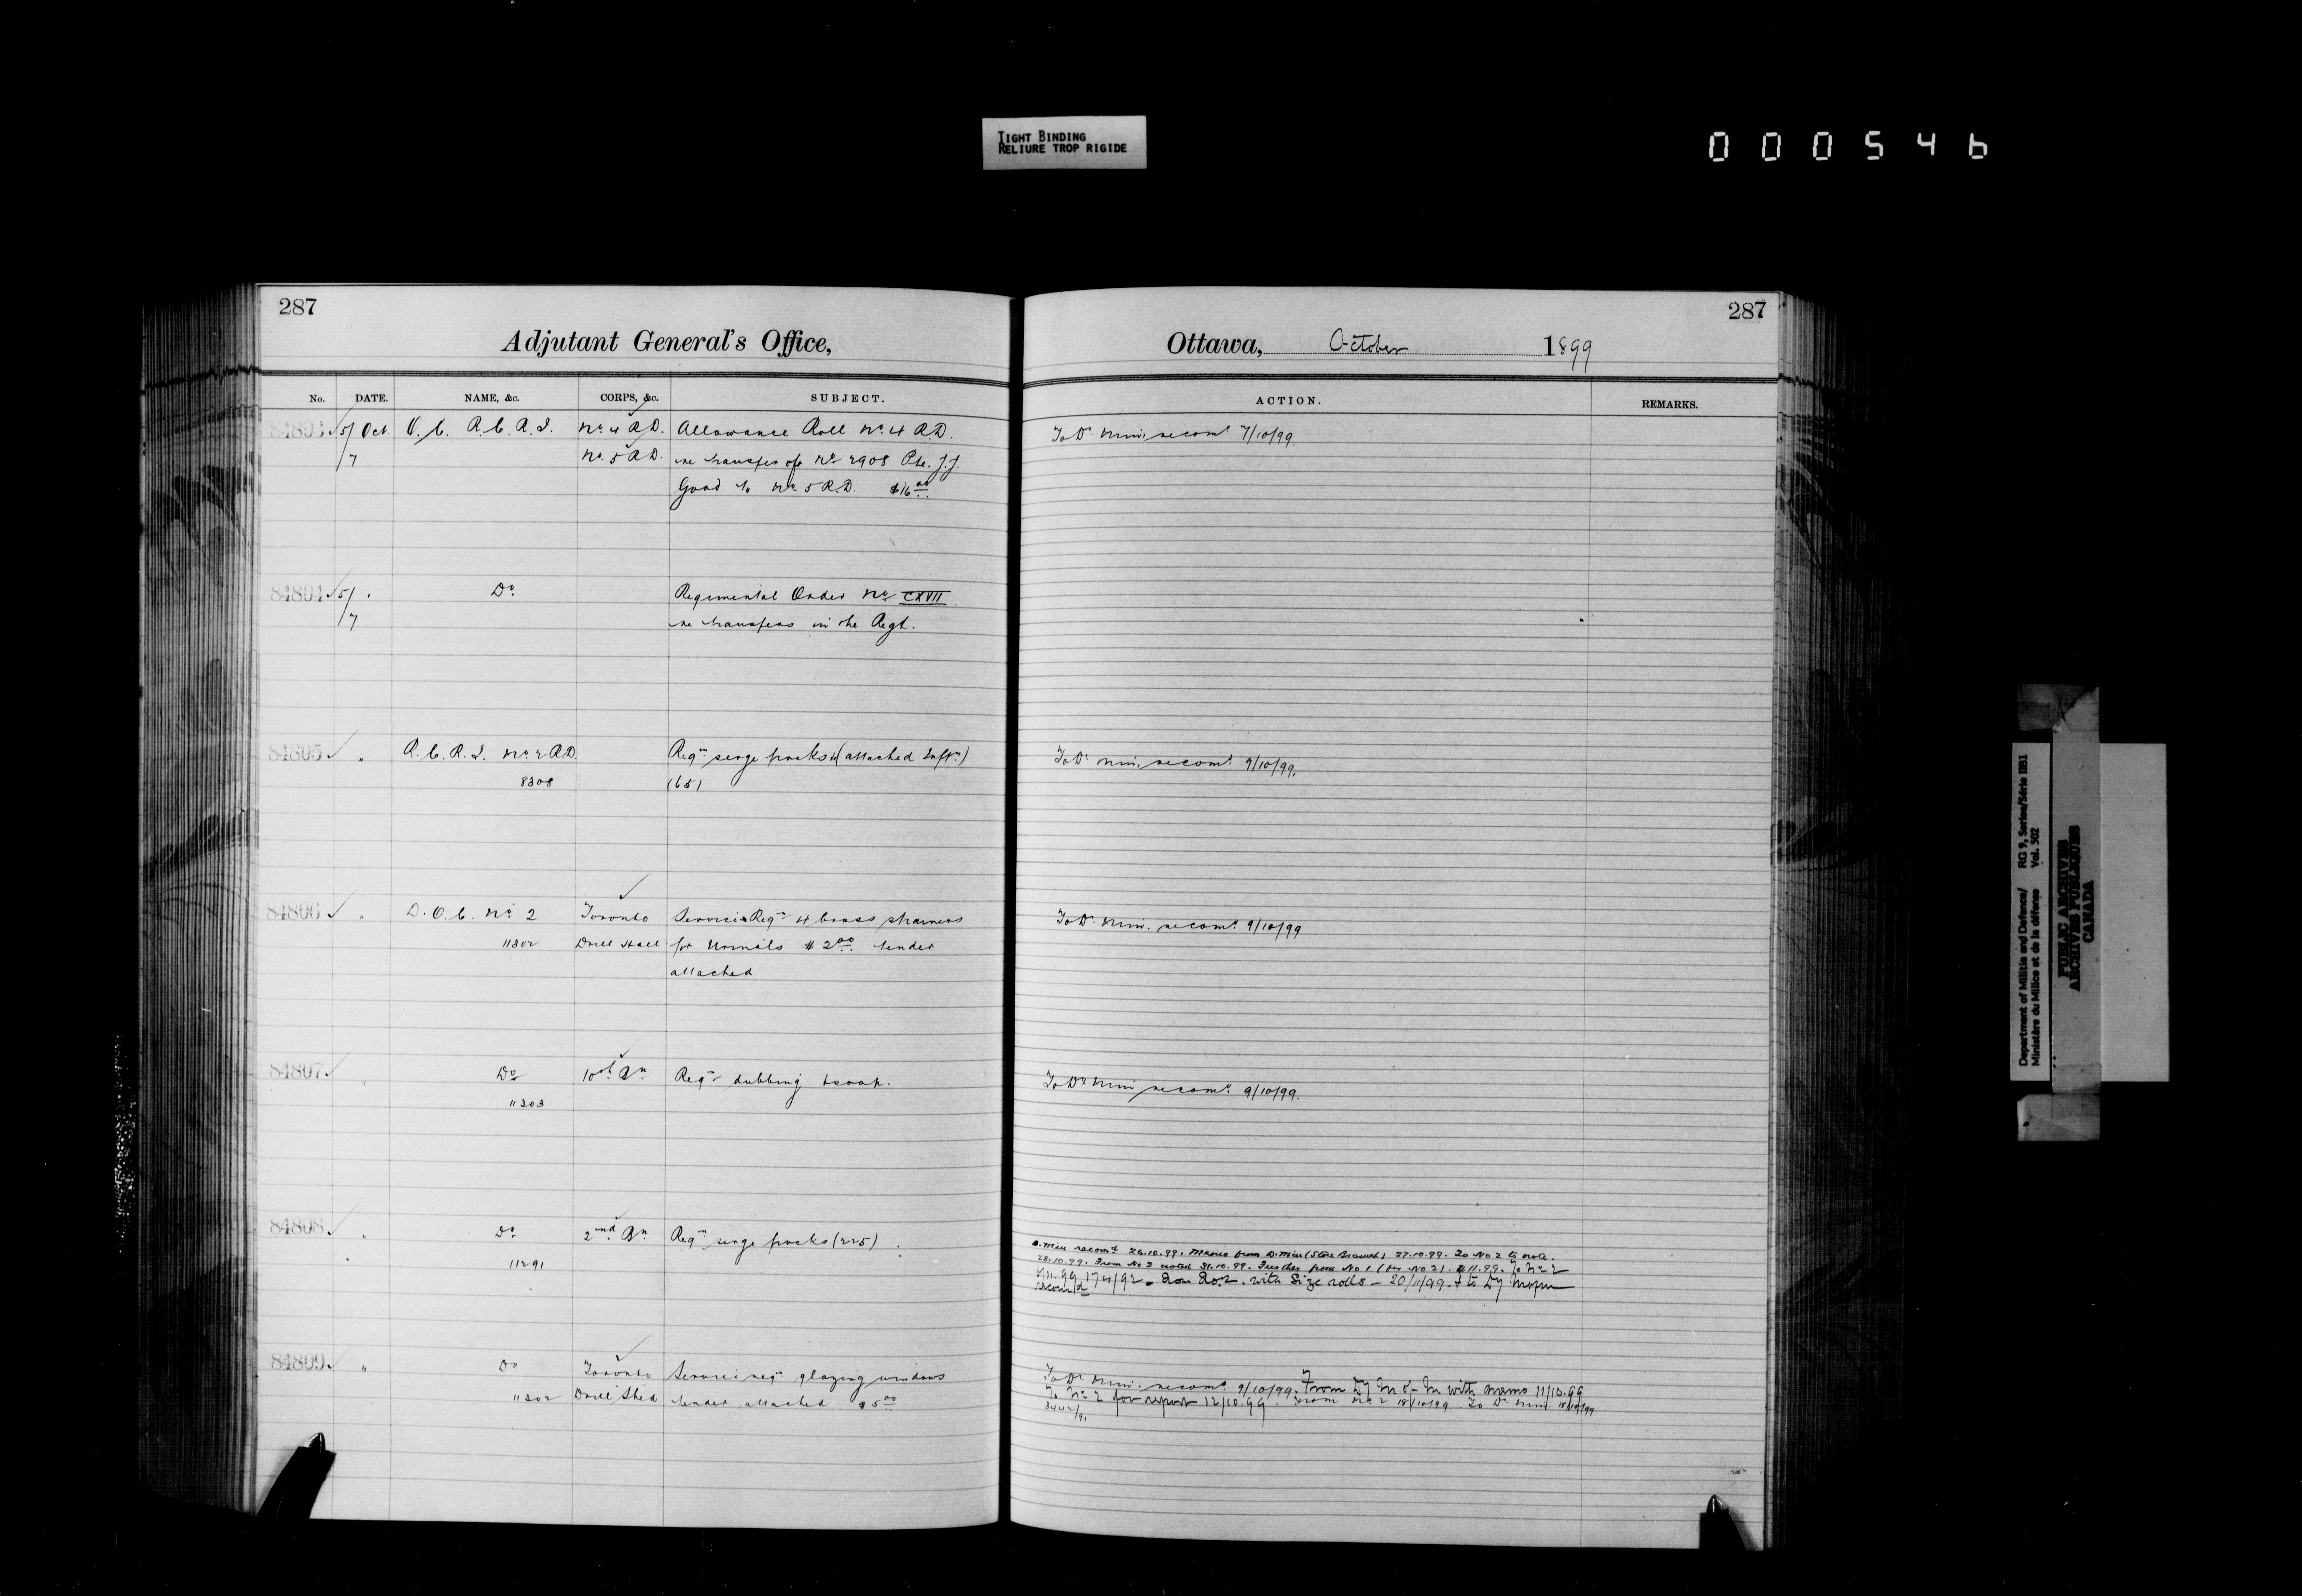 TIGHT BINDING
RELIURE TROP RIGIDE
000546
287
Adjutant General's Office,
No. DATE. NAME, &c. CORPS, &c. SUBJECT.
84803 5/ Oct O.C. R.C.R.I. No. 4 R.D. Allowance Roll No. 4 R.D.
/7 No. 5 R.D. re transfer of No 2908 Pte. J.J.
Good to No. 5 R.D. $16.00
84804 5/ " Do Regimental Order No CXVII
/7 re transfers in the Regt.
84805 " R.C.R.I. No. 2 R.D. Reqn serge frocks (attached Inftry)
8308 (65)
84806 " D.O.C. No. 2 Toronto Services Reqn 4 brass strainers
11302 Drill Hall for Urinals $2.00 tender
attached
84807 " Do 10th Bn Reqn dubbing & soap.
11303
84808 " Do 2nd Bn Reqn serge frocks (225)
11291
84809 " Do Toronto Services reqn glazing windows
11302 Drill Shed tender attached $5.00
287
Ottawa, October 1899
ACTION. REMARKS.
To Dr Min. recomd 7/10/99
To Dr Min. recomd 9/10/99.
To Dr Min. recomd 9/10/99
To Dr Min recomd 9/10/99.
D. Min recomd 26.10.99. Memo from D. Min (Store Branch) 27.10.99. To No 2 to note.
28.10.99. From No 2 noted 31.10.99. Further from No 1 (for No 2). 11.99. To No 2
11.99 174/92. From No. 2. with Size rolls - 20/11/99. & to Dy
recomd
To Dr Min. recomd 9/10/99. From Dy M of M with memo 11/10.99
To No 2 for report 12/10.99. From No 2 18/10/99. To Dr Min. 18/10/99
Department of Militia and Defence/ RG 9, Series/Série IIB1
Ministère du Milice et de la défense Vol. 502
PUBLIC ARCHIVES
ARCHIVES PUBLIQUES
CANADA